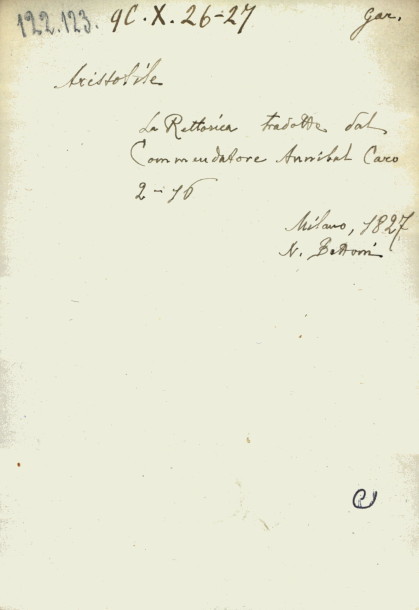 122.123. 9C.X.26-27 Gar.
Aristotile
La Rettorica tradotta dal
Commendatore Annibal Caro
2-16
Milano, 1827
N. Bettoni